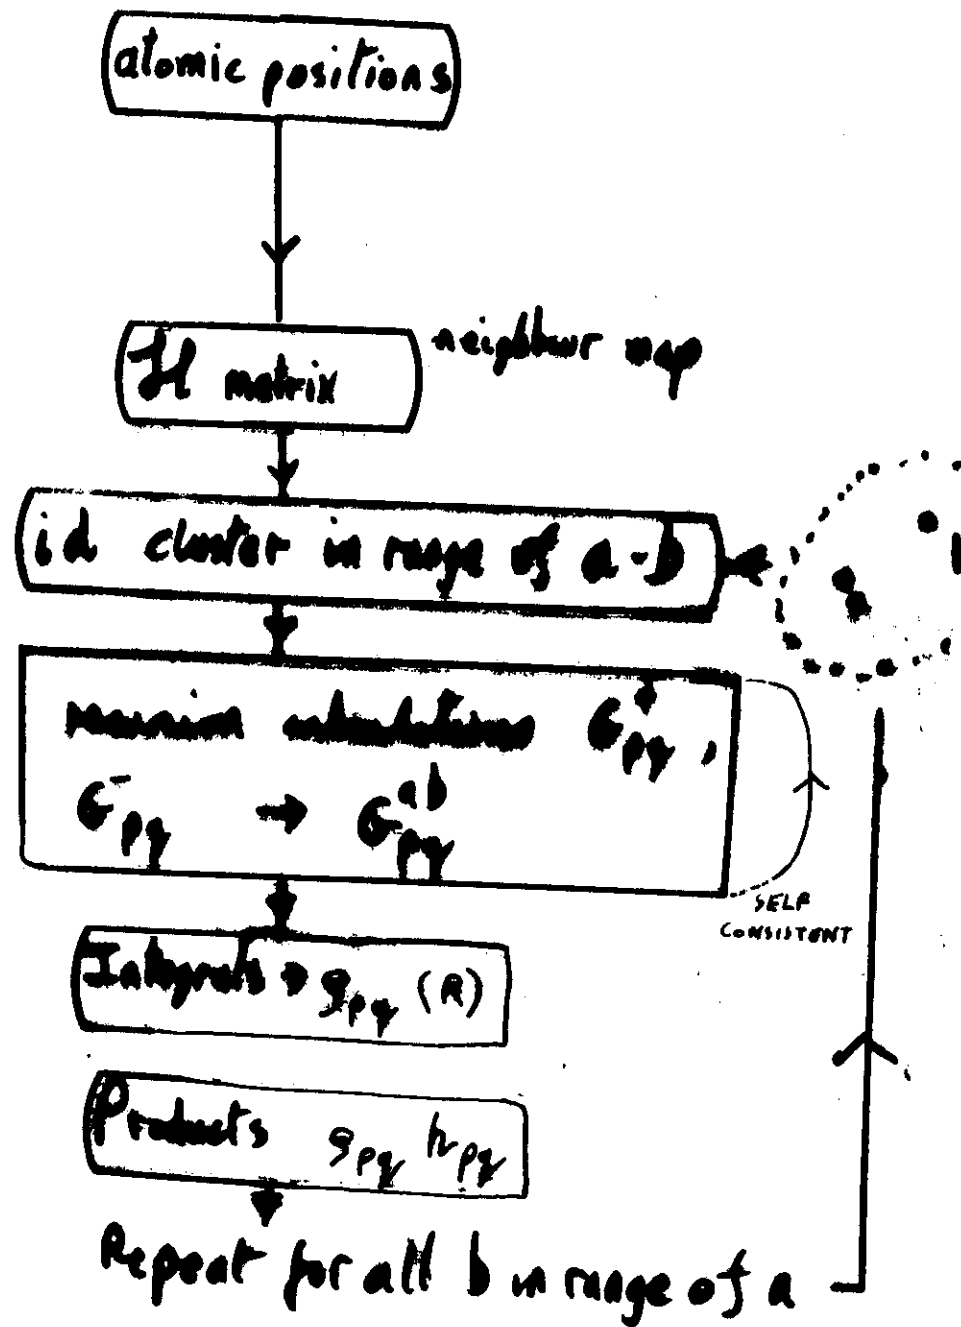 atomic positions
H matrix
neighbour map
id cluster in range of a-b
recursion calculations G⁺pq,
G⁻pq → G^ab pq
SELF
CONSISTENT
Integrals → gpq (R)
Products gpq hpq
Repeat for all b in range of a